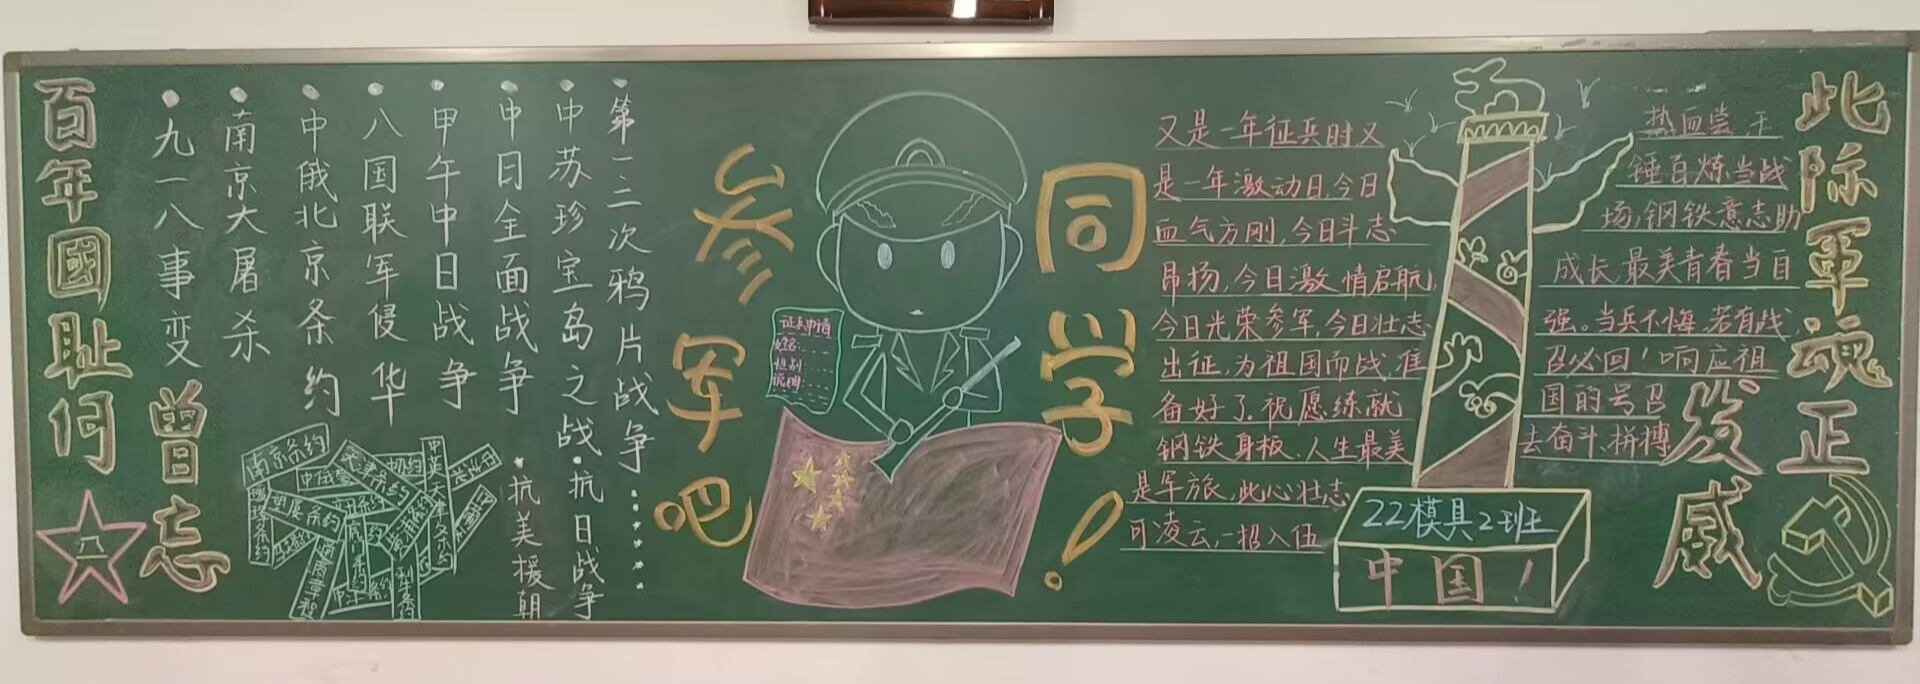 百年國耻何
曾忘
九一八事变
南京大屠杀
中俄北京条约
八国联军侵华
甲午中日战争
中日全面战争
中苏珍宝岛之战
第一二次鸦片战争
抗美援朝
抗日战争
南京条约
天津条约
望厦条约
瑷珲条约
同学!
参军吧
征兵申请
姓名:
性别:
说明:
又是一年征兵时又
是一年激动日,今日
血气方刚,今日斗志
昂扬,今日激情启航,
今日光荣参军,今日壮志
出征,为祖国而战,准
备好了,祝愿练就
钢铁身板、人生最美
是军旅,此心壮志
可凌云,一招入伍
热血尝千
锤百炼当战
场,钢铁意志助
成长,最美青春当自
强。当兵不悔,若有战,
召必回!响应祖
国的号召
去奋斗、拼搏
22模具2班
中国!
此际軍魂正
发威
八一